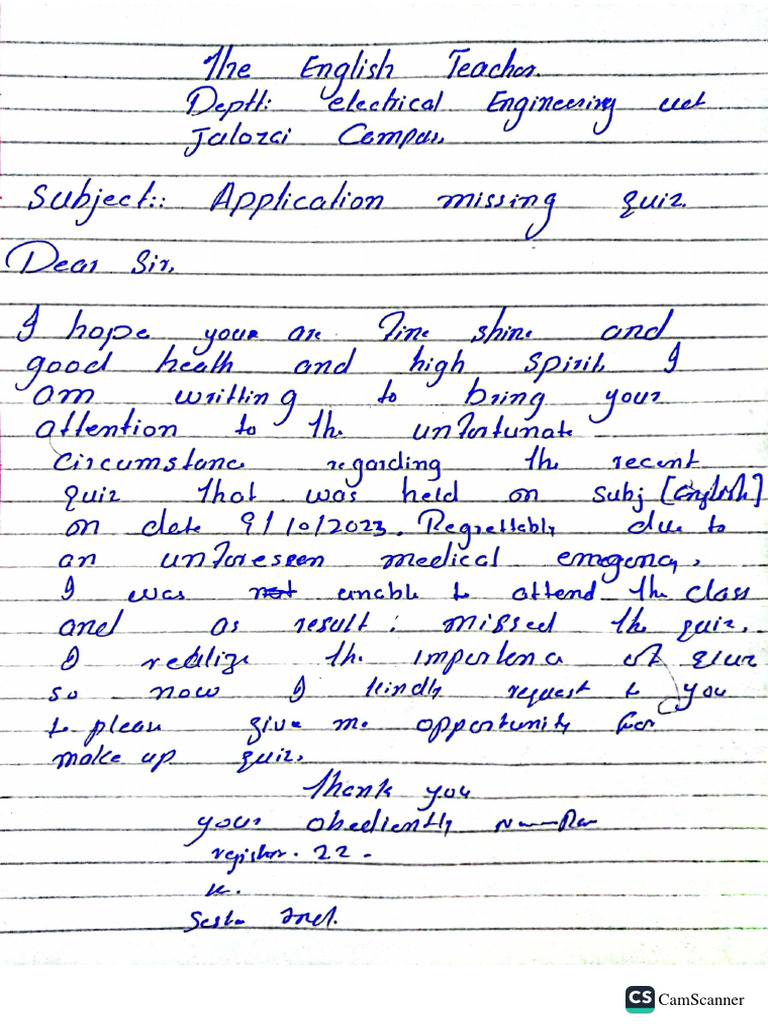 The English Teacher.
Deptt: electrical Engineering uet
Jalozai Campus.
Subject:: Application missing quiz.
Dear Sir,
I hope your are fine shine and
good heath and high spirit, I
am writting to bring your
attention to the unfortunate
circumstance regarding the recent
quiz that was held on subj [English]
on date 9/10/2023. Regrettably due to
an unforeseen medical emegency,
I was not unable to attend the class
and as result: missed the quiz.
I realize the importance of
so now I kindly request to you
to please give me opportunity for
make up quiz.
Thank you
your obediently
register. 22 -
CS CamScanner